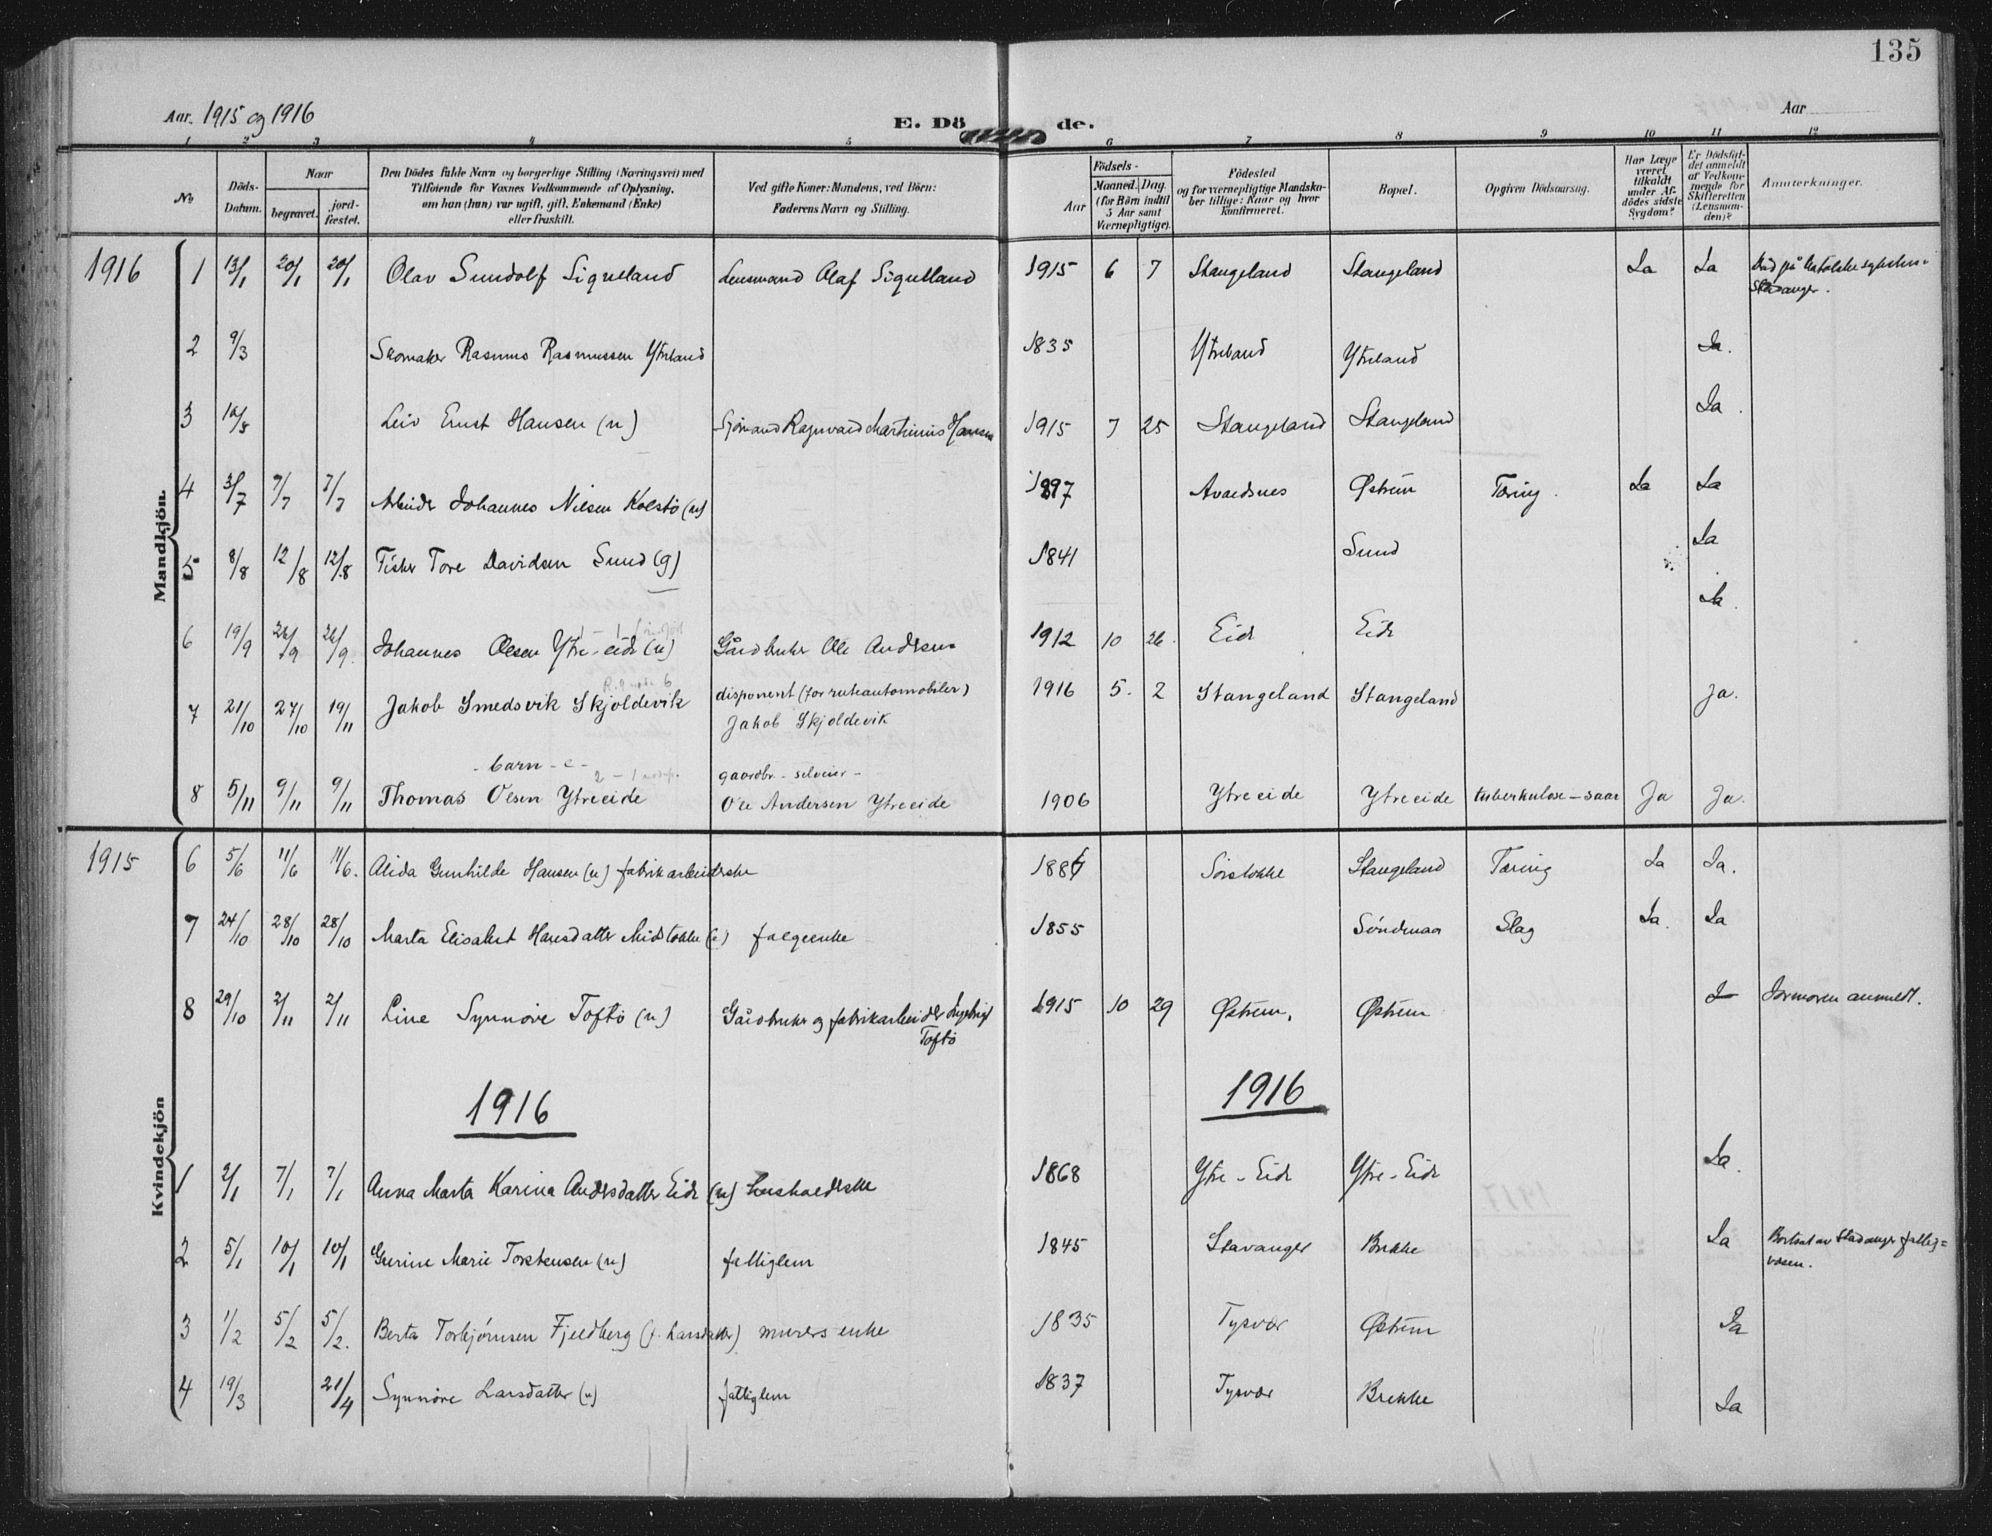 135
Aar. 1915 og 1916
E. Dö de.
Aar
1 2 3 4 5 6 7 8 9 10 11 12
No
Döds-Datum.
Naar
begravet.
jord-fæstet.
Den Dödes fulde Navn og borgerlige Stilling (Næringsvei) med
Tilföiende for Voxnes Vedkommende af Oplysning,
om han (hun) var ugift, gift, Enkemand (Enke)
eller fraskilt.
Ved gifte Koner: Mandens, ved Börn:
Faderens Navn og Stilling.
Födsels-
Aar
Maaned. Dag.
(for Börn indtil
5 Aar samt
Værnepligtige).
Födested
og for værnepligtige Mandska-
ber tillige: Naar og hvor
konfirmeret.
Bopæl.
Opgiven Dödsaarsag.
Har Læge
været
tilkaldt
under Af-
dödes sidste
Sygdom?
Er Dödsfal-
det anmeldt
af Vedkom-
mende for
Skifteretten
(Lensman-
den)?
Anmærkninger.
Mandkjön.
1916 1 13/1 20/1 20/1 Olav Sundolf Sigvelland Lensmand Olaf Sigvelland 1915 6 7 Stangeland Stangeland Ja Ja Död på katolske sykehus=
Stavanger.
2 9/3 Skomaker Rasmus Rasmussen Ytreland 1835 Ytreland Ytreland Ja.
3 10/5 Leiv Ernst Hansen (u) Sjömand Ragnvald Martinius Hansen 1915 7 25 Stangeland Stangeland Ja.
4 3/7 7/7 7/7 Arbeider Johannes Nilsen Kolstö (u) 1897 Avaldsnes Østrem Tæring. Ja Ja
5 8/8 12/8 12/8 Fisker Tore Davidsen Sund (g) 1841 Sund Ja
6 19/9 26/9 26/9. Johannes Olsen Ytre-eide (u) Gårdbruker Ole Andersen 1912 10 26. Eide Eide Ja.
7 21/10 27/10 19/11 Jakob Smedsvik Skjoldevik disponent (for ruteautomobiler)
Jakob Skjoldevik 1916 5. 2 Stangeland Stangeland Ja.
- barn - e -
8 5/11 9/11 9/11 Thomas Olsen Ytreeide gaardbr. - selveier -
Ole Andersen Ytreeide 1906 Ytreeide Ytreeide tuberkulose - saar Ja Ja.
Kvindekjön
1915 6 5/6 11/6 11/6. Alida Gunhilde Hansen (u) fabrikarbeiderske 1886 Sörstokke Stangeland Tæring Ja Ja.
7 24/10 28/10 28/10 Marta Elisabet Hansdatter Midstokke (e) folgeenke 1855 Söndenaa Slag Ja. Ja
8 29/10 2/11 2/11 Line Synnöve Toftö (u) Gårdbruker og fabrikarbeider Ingebrigt
Toftö 1915 10 29 Østrem. Østrem Ja Jormoren anmeldt.
1916 1916
1 2/1 7/1 7/1 Anna Marta Karina Andersdatter Eide (u) husholderske 1868 Ytre-Eide Ytre-Eide Ja.
2 5/1 10/1 10/1 Gurine Marie Torstensen (u) fattiglem 1845 Stavanger Brekke Ja Bortsat av Stavanger fattig=
væsen.
3 1/2 5/2 5/2. Berta Torbjörnsen Fjeldberg (f. Larsdatter) murers enke 1835 Tysvær Østrem Ja
4 19/3 21/4 Synnöve Larsdatter (u) fattiglem 1837 Tysvær Brekke Ja